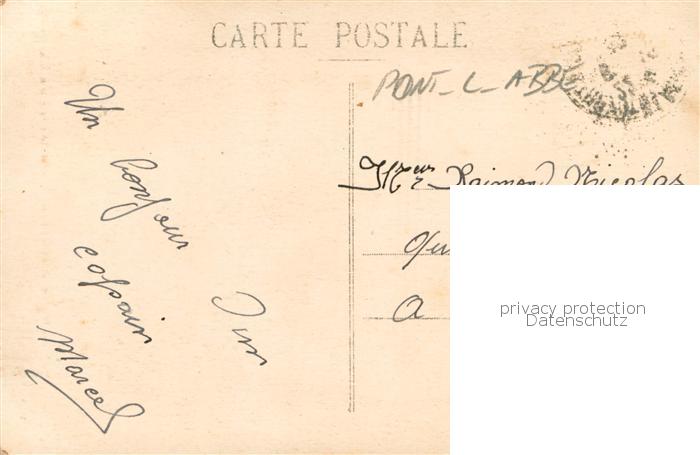 CARTE POSTALE
PONT-L-ABBE
Un bonjour
d'un
copain
Marcel
Raimond Nicolas
A
privacy protection
Datenschutz